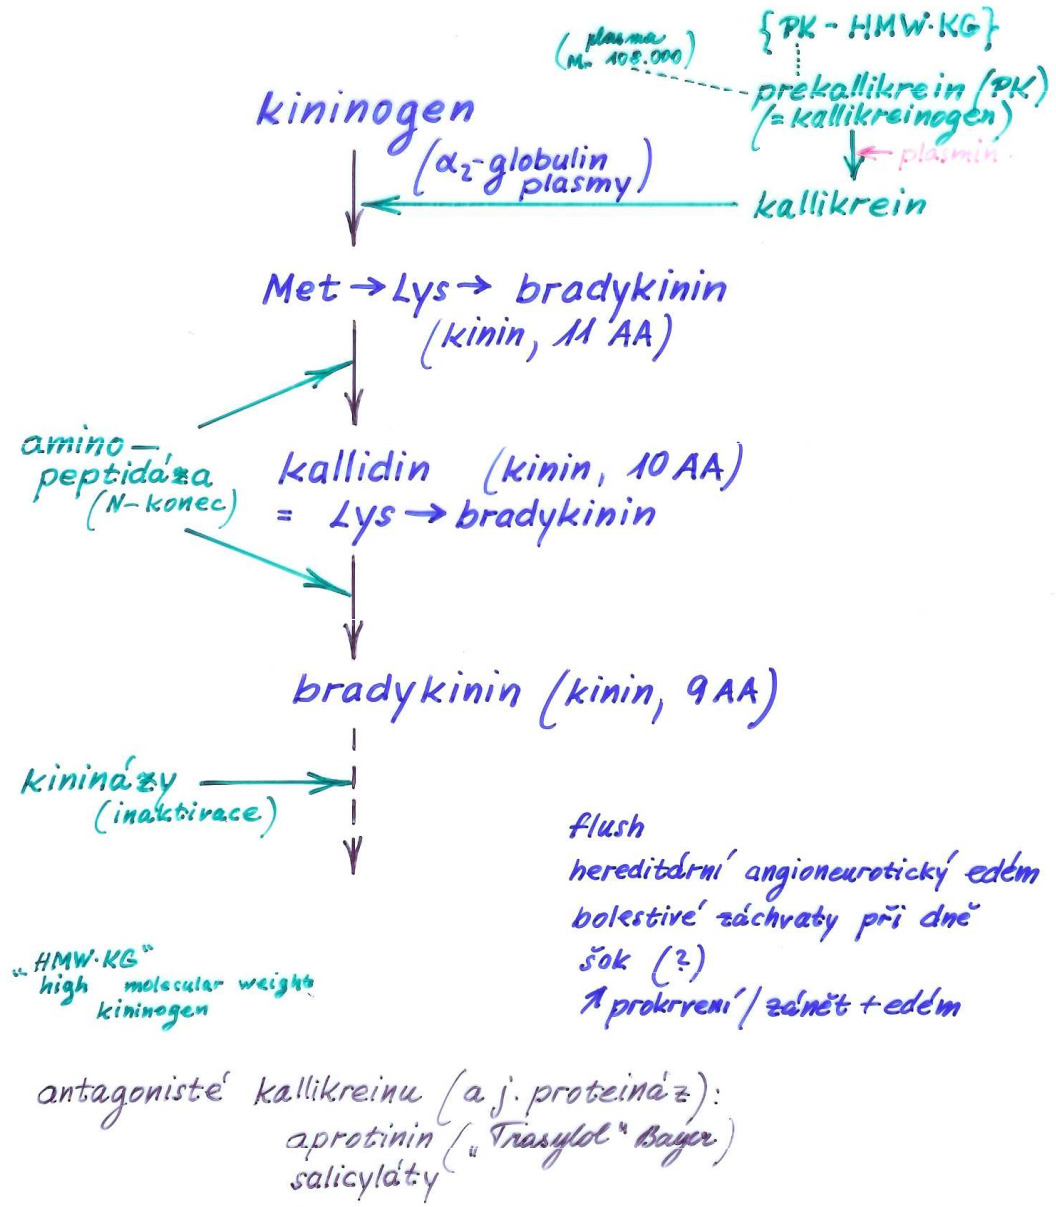 {PK - HMW·KG}
(plasma
Mr 108.000)
prekallikrein (PK)
(= kallikreinogen)
← plasmin
kallikrein
kininogen
(α2-globulin
plasmy)
Met → Lys → bradykinin
(kinin, 11 AA)
amino-,
peptidáza
(N-konec)
kallidin (kinin, 10 AA)
= Lys → bradykinin
bradykinin (kinin, 9 AA)
kininázy
(inaktivace)
flush
hereditární angioneurotický edém
bolestivé záchvaty při dně
šok (?)
↑ prokrvení / zánět + edém
„HMW·KG“
high molecular weight
kininogen
antagonisté kallikreinu (a j. proteináz):
aprotinin („Trasylol“ Bayer)
salicyláty